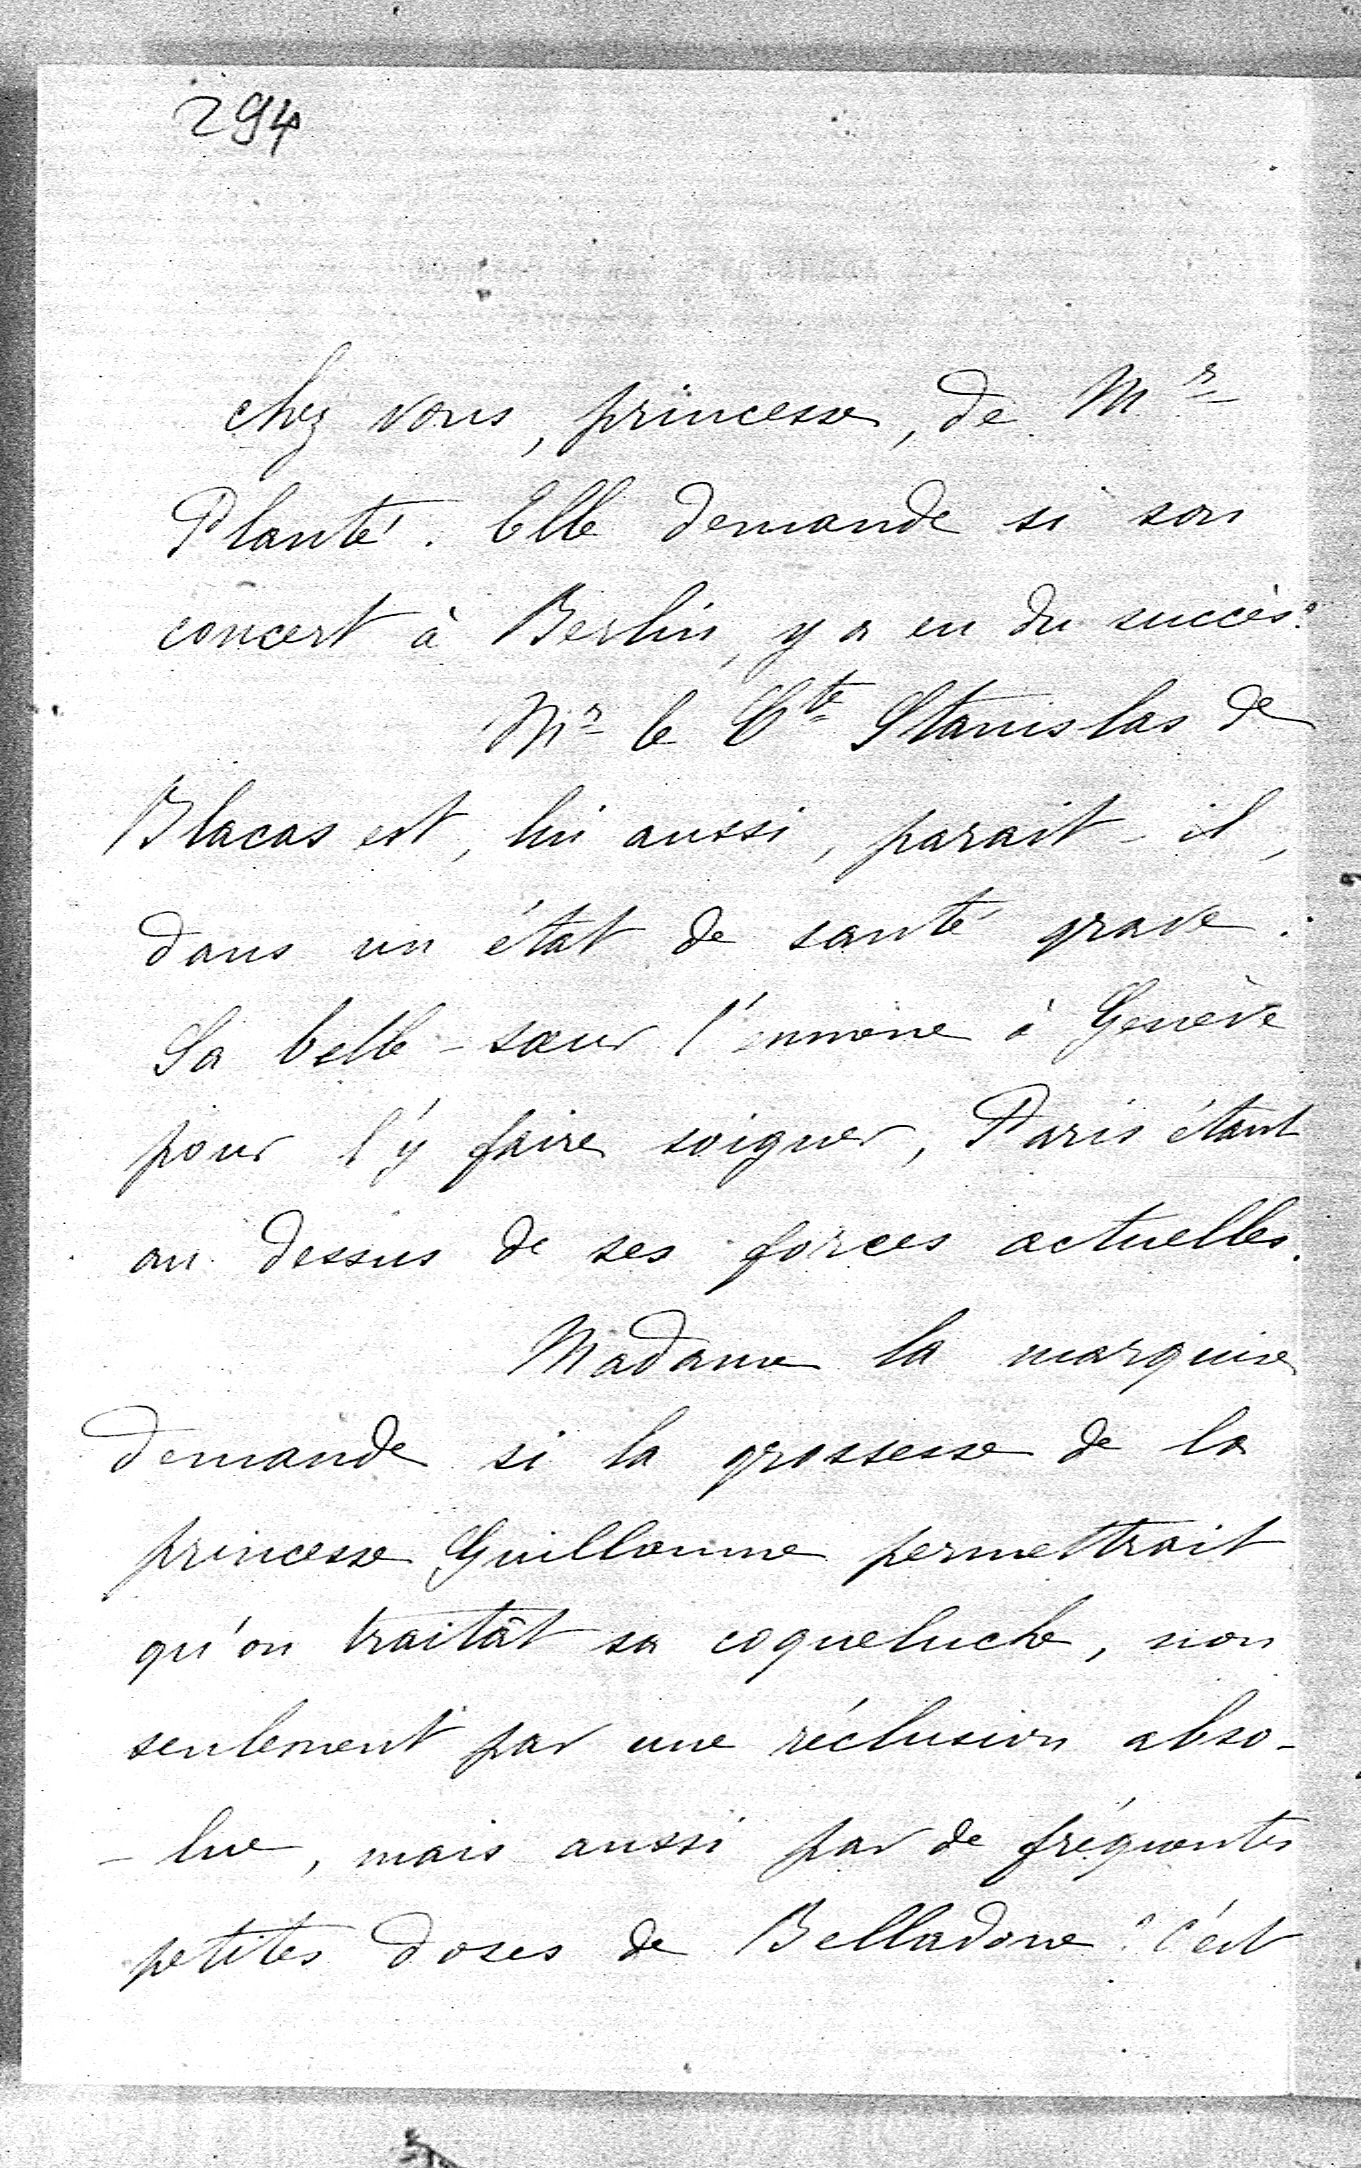 294
chez vous, princesse, de Mr
Planté. Elle demande si son
concert à Berlin, y a eu du succès?
Mr le Cte Stanislas de
Blacas est, lui aussi, parait-il,
dans un état de santé grave.
Sa belle-sœur l'emmène à Genève
pour l'y faire soigner, Paris étant
au dessus de ses forces actuelles.
Madame la marquise
demande si la grossesse de la
princesse Guillaume permettrait
qu'on traitât sa coqueluche, non
seulement par une réclusion abso-
-lue, mais aussi par de fréquentes
petites doses de Belladone? C'est